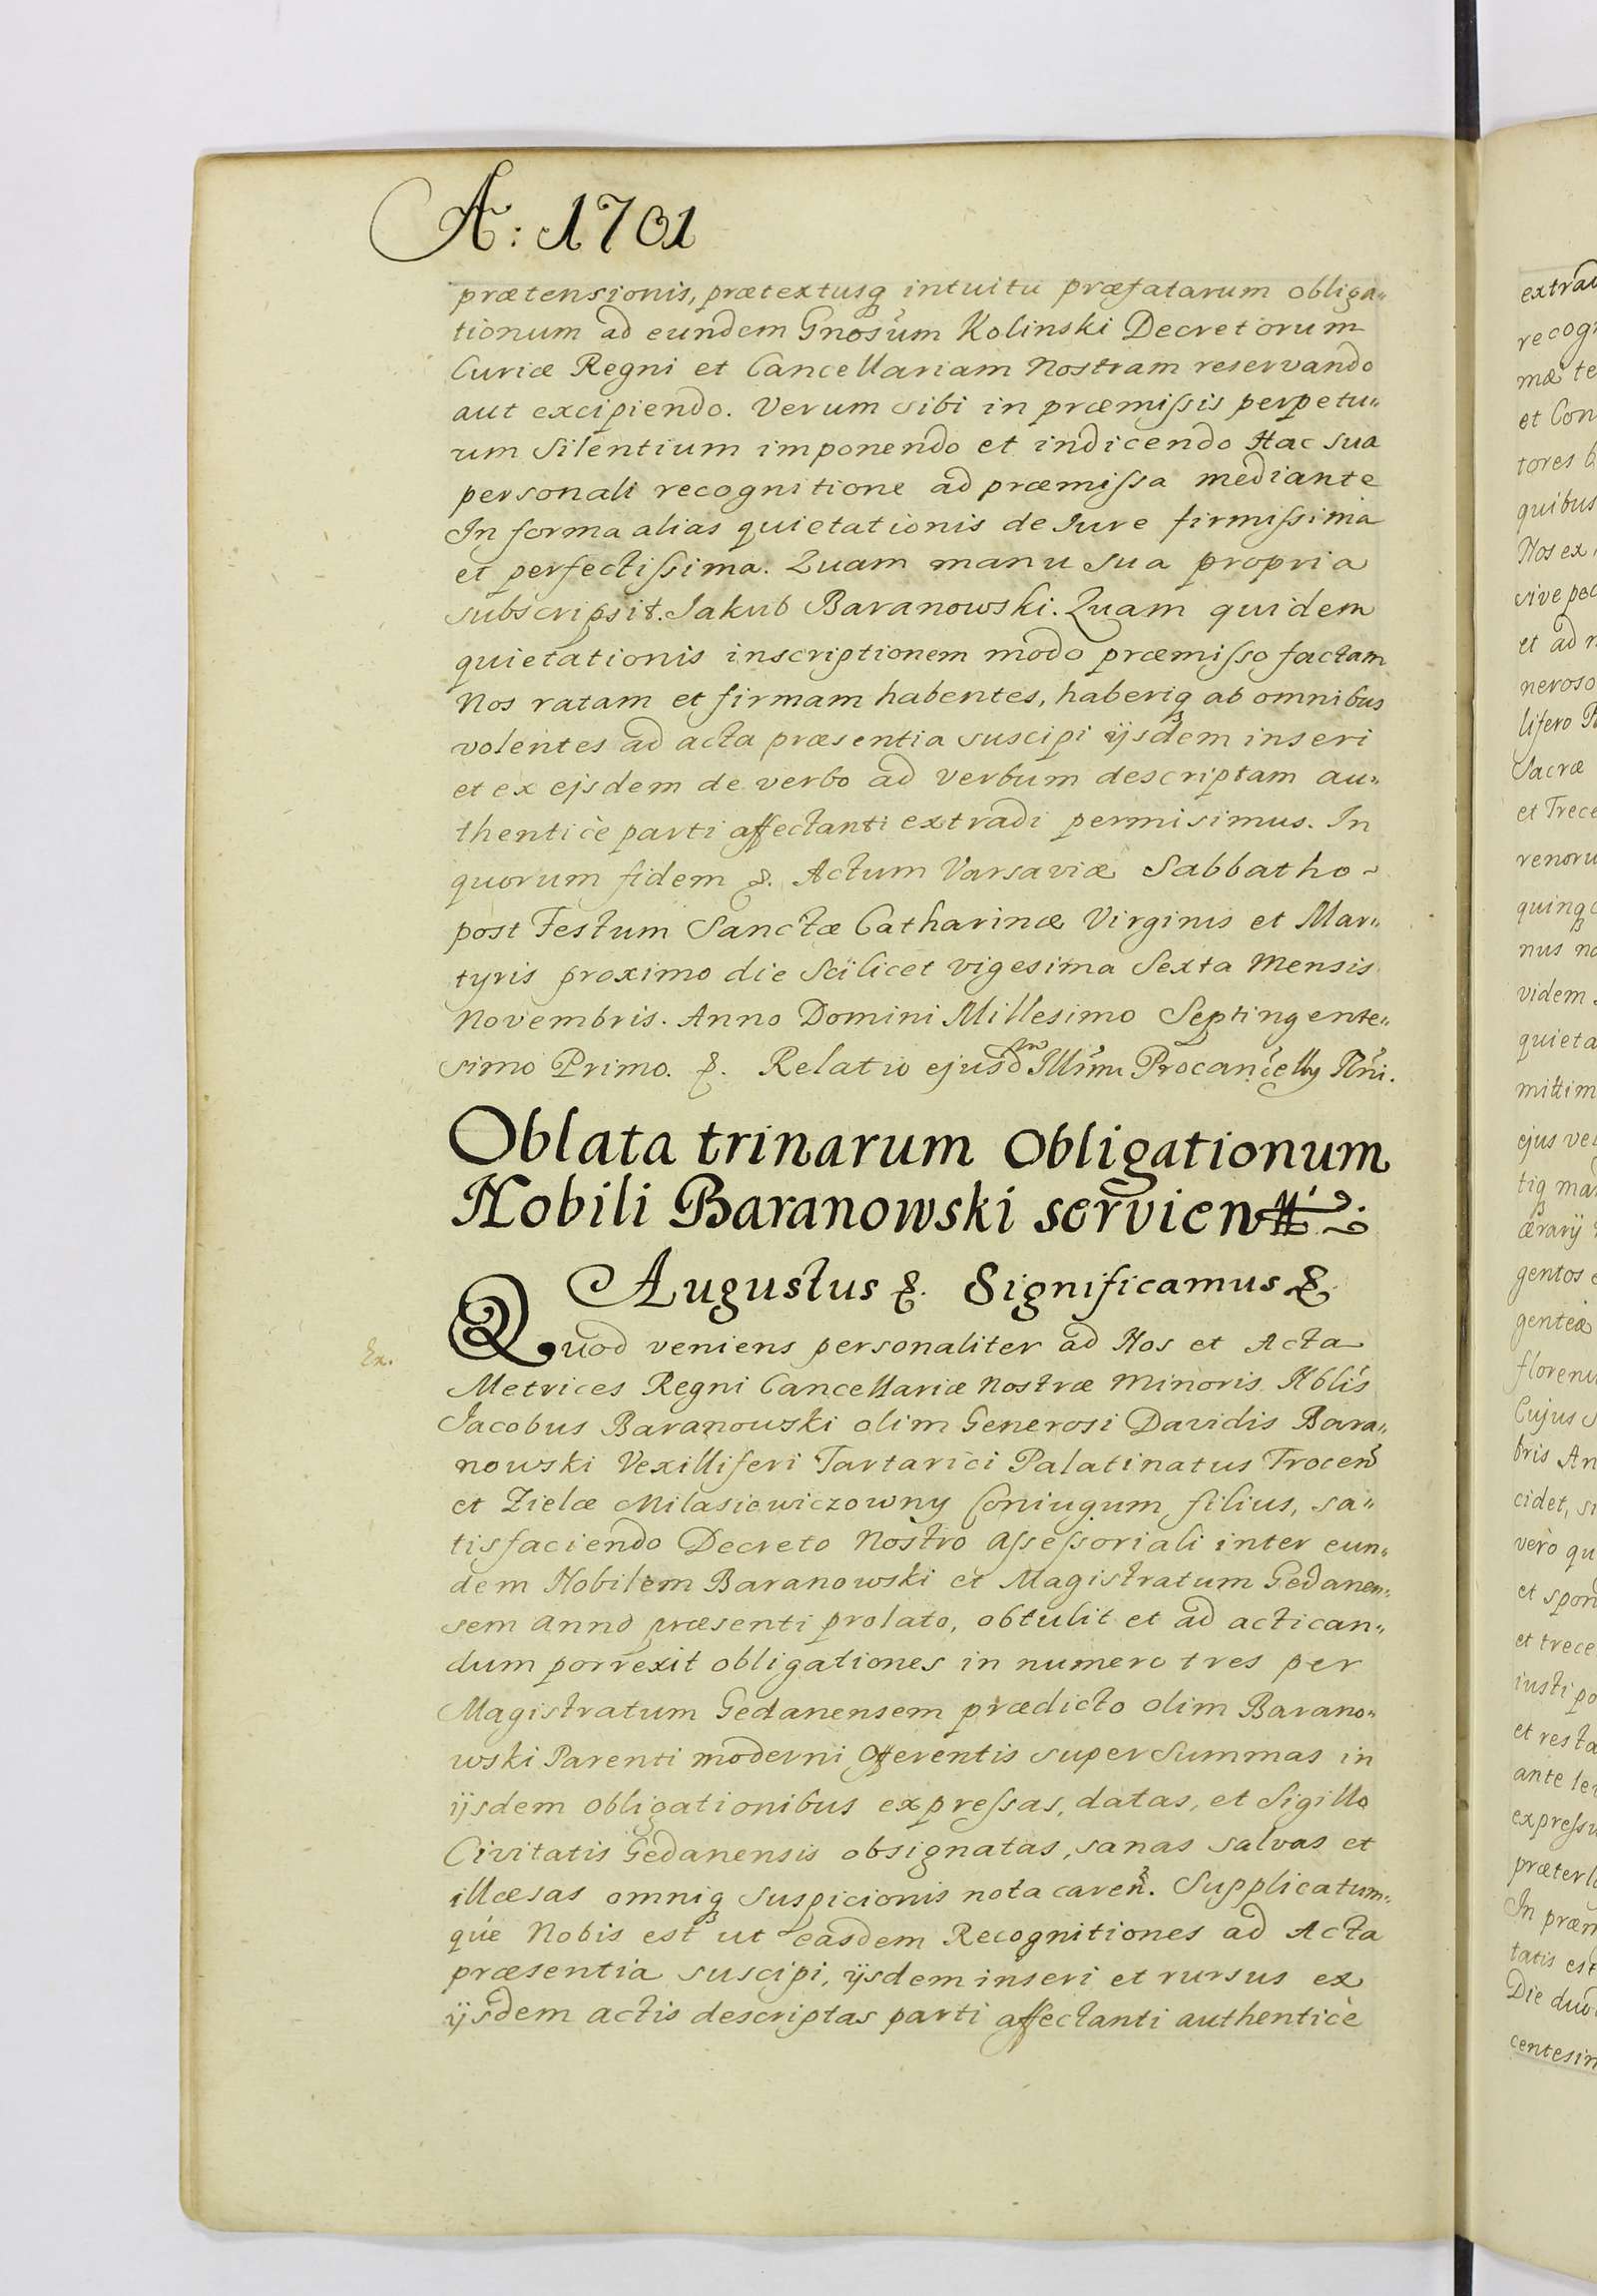 A: 1701
prætensionis, prætextusq intuitu præfatarum obliga„
tionum ad eundem Gnosum Kolinski Decretorum
Curiæ Regni et Cancellariam Nostram reservando
aut excipiendo. Verum sibi in præmiſsis perpetu„
um Silentium imponendo et indicendo Hac sua
personali recognitione ad præmiſsa mediante
In forma alias quietationis de Iure firmiſsima
et perfectiſsima. Quam manu sua propria
subscripsit. Jakub Baranowski. Quam quidem
quietationis inscriptionem modo præmiſso factam
Nos ratam et firmam habentes, haberiq ab omnibus
volentes ad acta præsentia suscipi ijsdem inseri
et ex ejsdem de verbo ad verbum descriptam au„
thenticè parti affectanti extradi permisimus. In
quorum fidem &. Actum Varsaviæ Sabbatho
post Festum Sanctæ Catharinæ Virginis et Mar„
tyris proximo die Scilicet vigesima Sexta Mensis
Novembris. Anno Domini Millesimo Septingente„
simo Primo. &. Relatio ejusdm Illimi Procancelly Rni.
Oblata trinarum Obligationum
Nobili Baranowski servien
Augustus &. Significamus &
Ex.
Quod veniens personaliter ad Nos et Acta
Metrices Regni Cancellariæ Nostræ Minoris Nblis
Iacobus Baranowski olim Generosi Davidis Bara„
nowski Vexilliferi Tartarici Palatinatus Trocen
et Zielæ Milasiewiczowny Coniugum filius, sa„
tisfaciendo Decreto Nostro Aſseſsoriali inter eun„
dem Nobilem Baranowski et Magistratum Gedanen„
sem anno præsenti prolato, obtulit et ad actican„
dum porrexit obligationes in numero tres per
Magistratum Gedanensem prædicto olim Barano„
wski Parenti moderni Offerentis super Summas in
ijsdem obligationibus expreſsas, datas, et Sigillo
Civitatis Gedanensis obsignatas, sanas salvas et
illæsas omniq suspicionis nota caren. Supplicatum„
que Nobis est ut easdem Recognitiones ad Acta
præsentia suscipi, ijsdem inseri et rursus ex
ijsdem actis descriptas parti affectanti authenticè